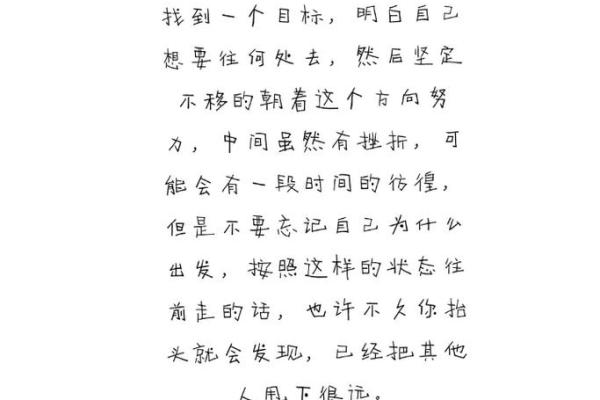 找到一个目标，明白自己
想要往何处去，然后坚定
不移的朝着这个方向努
力，中间虽然有挫折，可
能会有一段时间的彷徨，
但是不要忘记自己为什么
出发，按照这样的状态往
前走的话，也许不久你抬
头就会发现，已经把其他
人甩下很远。